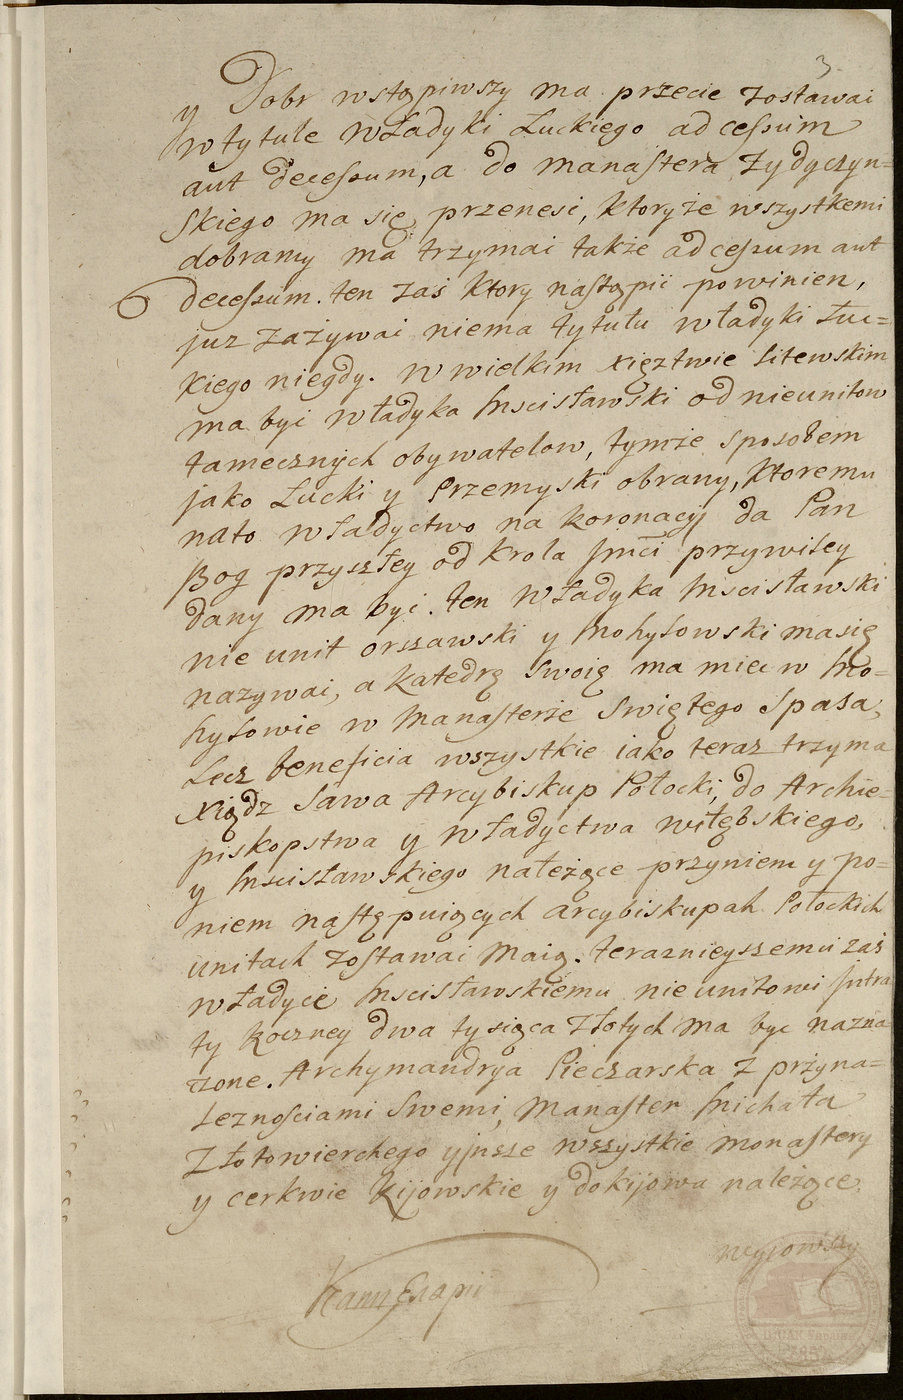 3.
y Dobr wstąpiwszy ma przecie zostawai
w tytule Władyki Luckiego ad cessum
aut decessum, a do Manastera Zydyczyn=
skiego ma się przenesi, ktoryże wszystkemi
dobramy ma trzymai także ad cessum aut
decessum. ten zaś ktory nastąpii powinien,
juz zazywai niema tytułu władyki łuc=
kiego niegdy. W wielkim xięztwie litewskim
ma byi władyka Mscisławski od nieunitow
tamecznych obywatelow, tymże sposobem
jako Lucki y Przemyski obrany, ktoremu
nato władyctwo na koronacyi da Pan
Bog przyszłey od krola Jmci przywiley
dany ma byi. ten Władyka Mscisławski
nie unit orszawski y Mohylowski masię
nazywai, a katedrę swoię ma miec w Mo=
hylowie w Manasterże Swiętego Spasa,
Lecz beneficia wszystkie iako teraz trzyma
xiądz Sawa Arcybiskup Połocki, do Archie=
piskopstwa y władyctwa witębskiego,
y Mscisławskiego należące przyniem y po=
niem następuiących arcybiskupah Połockich
unitach zostawai maią. teraznieyszemu zaś
władyce Mscisławskiemu nie unitowi Jntra
ty roczney dwa tysiąca złotych ma byc nazna
czone. Archymandrya Pieczarska z przyna=
leznościami swemi, Manaster Michała
Złotowierchego yjnsze wszystkie monastery
y cerkwie kijowskie y dokijowa należące.
wyiowszy